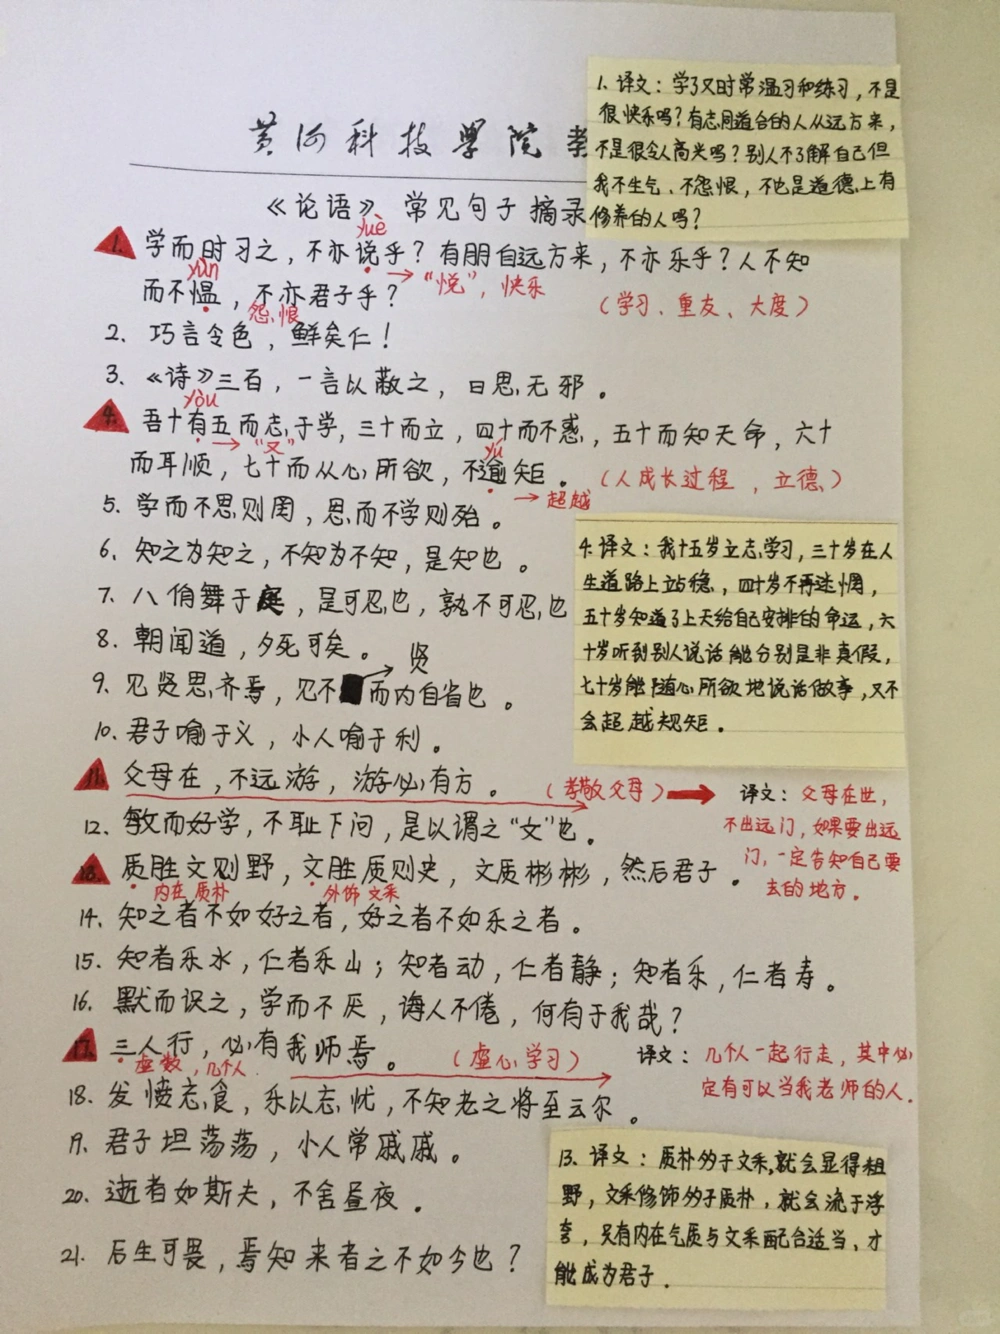 黄河科技学院
《论语》常见句子摘录
1. 译文：学了又时常温习和练习，不是
很快乐吗？有志同道合的人从远方来，
不是很令人高兴吗？别人不了解自己但
我不生气、不怨恨，不也是道德上有
修养的人吗？
yuè
1. 学而时习之，不亦说乎？有朋自远方来，不亦乐乎？人不知
yùn
→“悦”，快乐
而不愠，不亦君子乎？
怨、恨
（学习、重友、大度）
2. 巧言令色，鲜矣仁！
3. 《诗》三百，一言以蔽之，曰思无邪。
yòu
4. 吾十有五而志于学，三十而立，四十而不惑，五十而知天命，六十
→“又”
yú
而耳顺，七十而从心所欲，不逾矩。
（人成长过程，立德）
→超越
5. 学而不思则罔，思而不学则殆。
6. 知之为知之，不知为不知，是知也。
7. 八佾舞于庭，是可忍也，孰不可忍也
4. 译文：我十五岁立志学习，三十岁在人
生道路上站稳，四十岁不再迷惘，
五十岁知道了上天给自己安排的命运，六
十岁听到别人说话能分别是非真假，
七十岁能随心所欲地说话做事，又不
会超越规矩。
8. 朝闻道，夕死可矣。
贤
9. 见贤思齐焉，见不而内自省也。
10. 君子喻于义，小人喻于利。
11. 父母在，不远游，游必有方。
（孝敬父母）→
译文：父母在世，
不出远门，如果要出远
门，一定告知自己要
去的地方。
12. 敏而好学，不耻下问，是以谓之“文”也。
13. 质胜文则野，文胜质则史，文质彬彬，然后君子。
内在质朴
外饰文采
14. 知之者不如好之者，好之者不如乐之者。
15. 知者乐水，仁者乐山；知者动，仁者静；知者乐，仁者寿。
16. 默而识之，学而不厌，诲人不倦，何有于我哉？
17. 三人行，必有我师焉。
虚数，几个人.
（虚心学习）
译文：几个人一起行走，其中必
定有可以当我老师的人.
18. 发愤忘食，乐以忘忧，不知老之将至云尔。
19. 君子坦荡荡，小人常戚戚。
20. 逝者如斯夫，不舍昼夜。
21. 后生可畏，焉知来者之不如今也？
13. 译文：质朴多于文采，就会显得粗
野，文采修饰多于质朴，就会流于浮
夸，只有内在气质与文采配合适当，才
能成为君子.